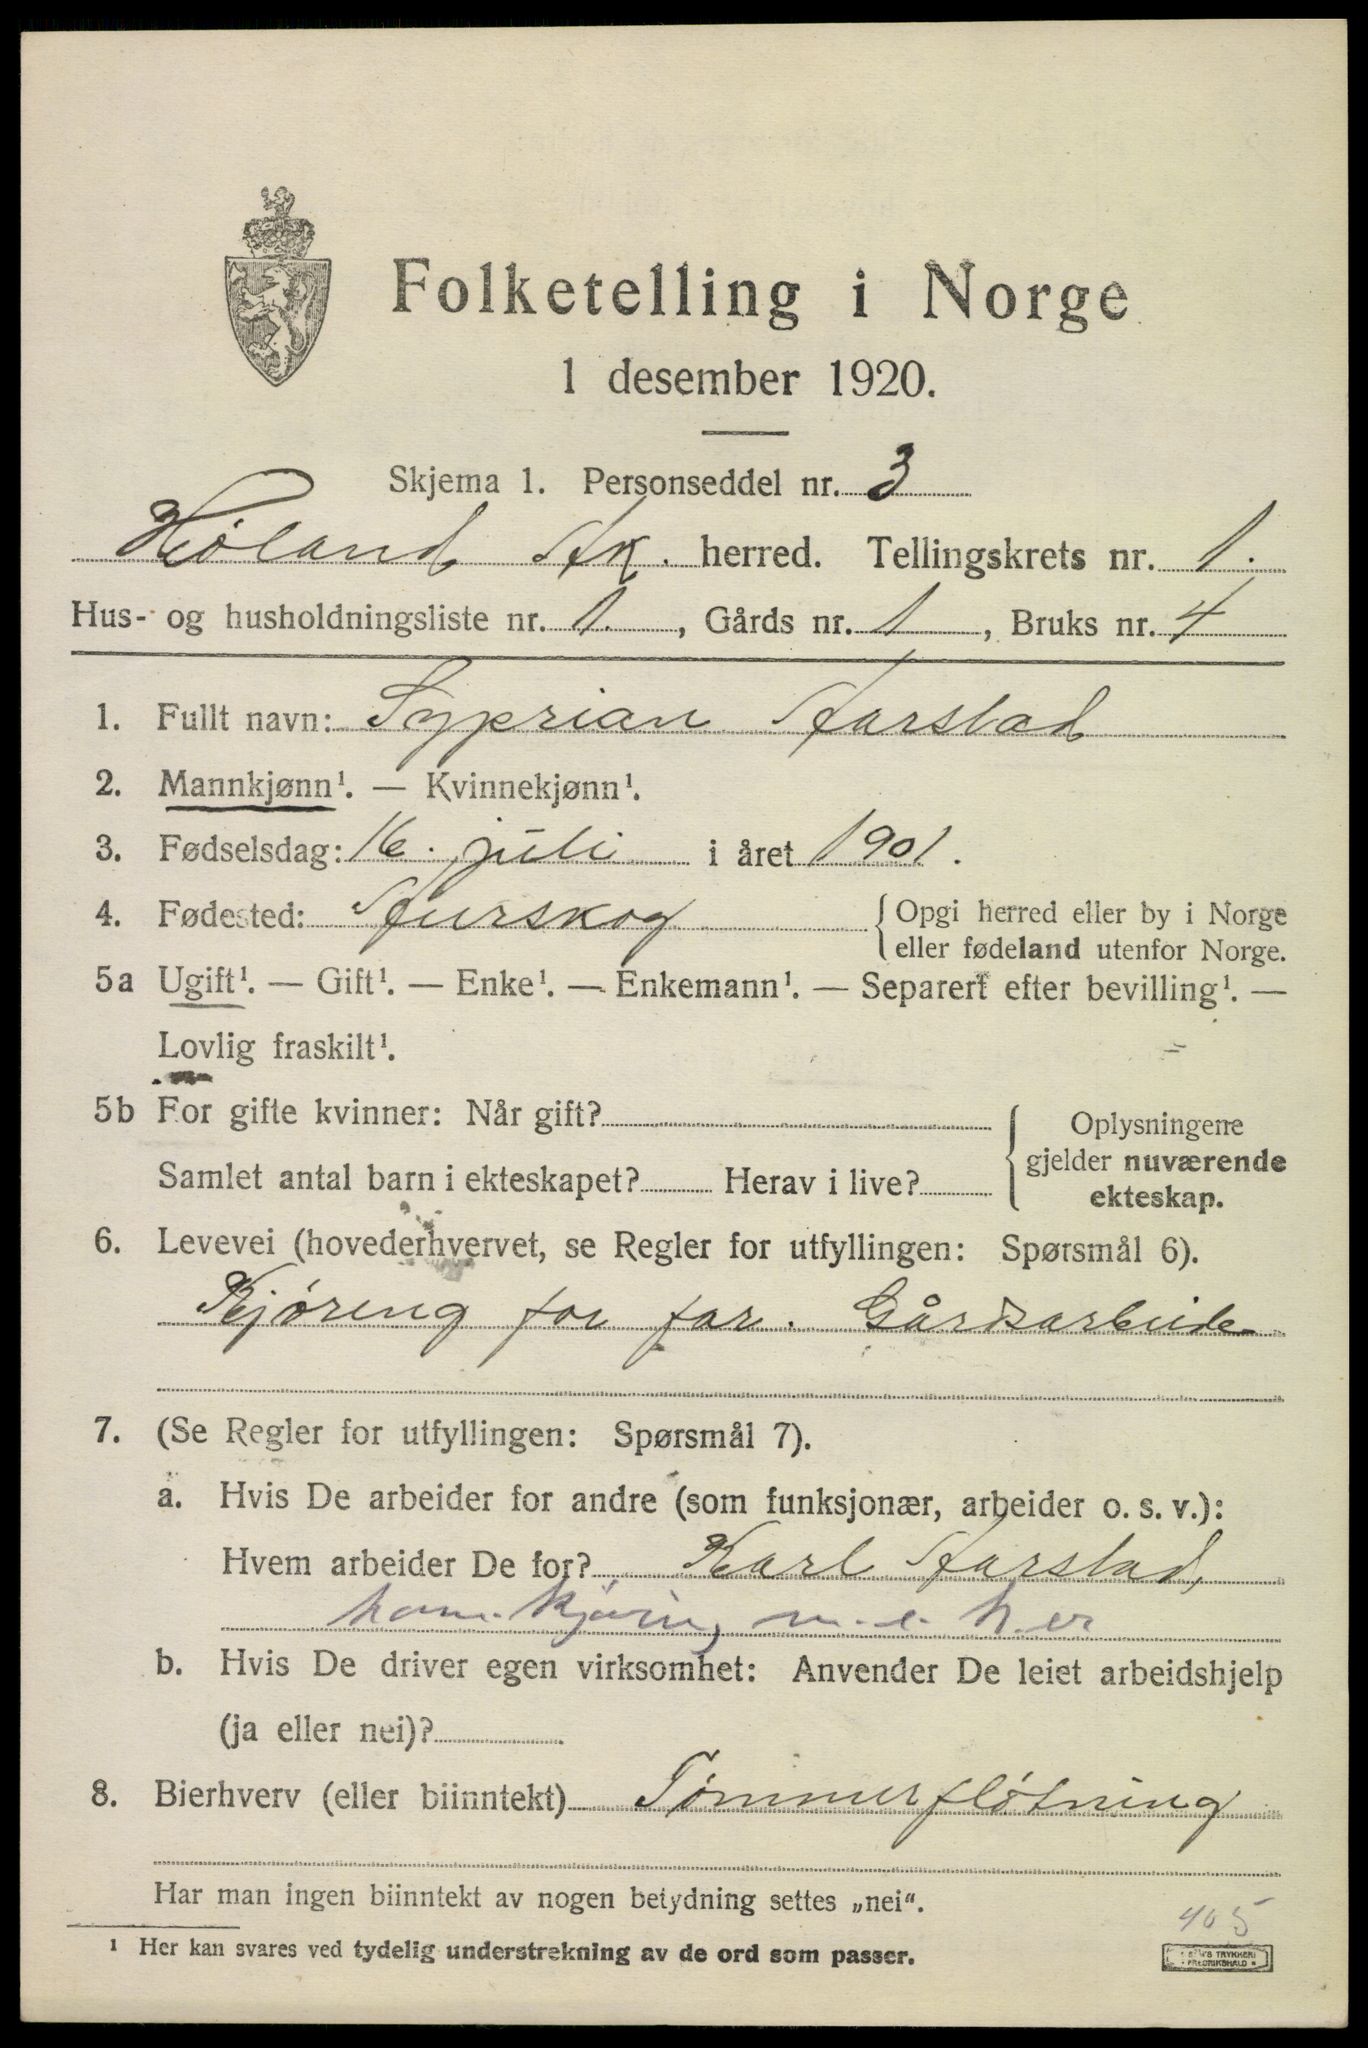 Folketelling i Norge
1 desember 1920.
Skjema 1. Personseddel nr. 3
Høland Ak. herred. Tellingskrets nr. 1.
Hus- og husholdningsliste nr. 1. , Gårds nr. 1 , Bruks nr. 4
1. Fullt navn: Syprian Aarstad
2. Mannkjønn¹. — Kvinnekjønn¹.
3. Fødselsdag: 16. juli i året 1901.
4. Fødested: Aurskog
{Opgi herred eller by i Norge
eller fødeland utenfor Norge.
5a Ugift¹. — Gift¹. — Enke¹. — Enkemann¹. — Separert efter bevilling¹. —
Lovlig fraskilt¹.
5b For gifte kvinner: Når gift?
Samlet antal barn i ekteskapet? Herav i live?
{Oplysningene
gjelder nuværende
ekteskap.
6. Levevei (hovederhvervet, se Regler for utfyllingen: Spørsmål 6).
Kjøring for far. Gårdsarbeide
7. (Se Regler for utfyllingen: Spørsmål 7).
a. Hvis De arbeider for andre (som funksjonær, arbeider o. s. v.):
Hvem arbeider De for? Karl Aarstad,
kjøring
b. Hvis De driver egen virksomhet: Anvender De leiet arbeidshjelp
(ja eller nei)?
8. Bierhverv (eller biinntekt) Tømmerfløtning
Har man ingen biinntekt av nogen betydning settes „nei“.
405
¹ Her kan svares ved tydelig understrekning av de ord som passer.
TRYKKERI
FREDRIKSHALD